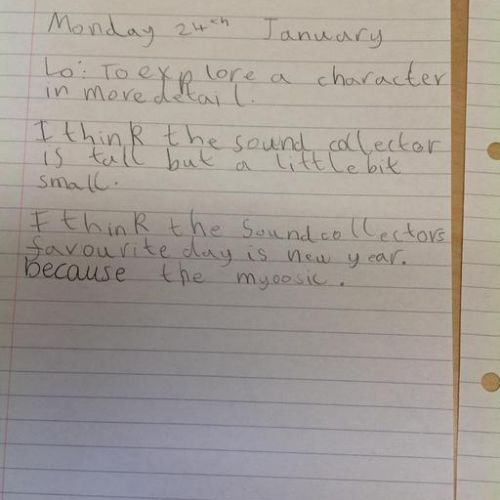 Monday 24th January
Lo: To explore a character
in more detail.
I think the sound collector
is tall but a little bit
small.
I think the Soundcollectors
favourite day is new year.
because the myoosic.